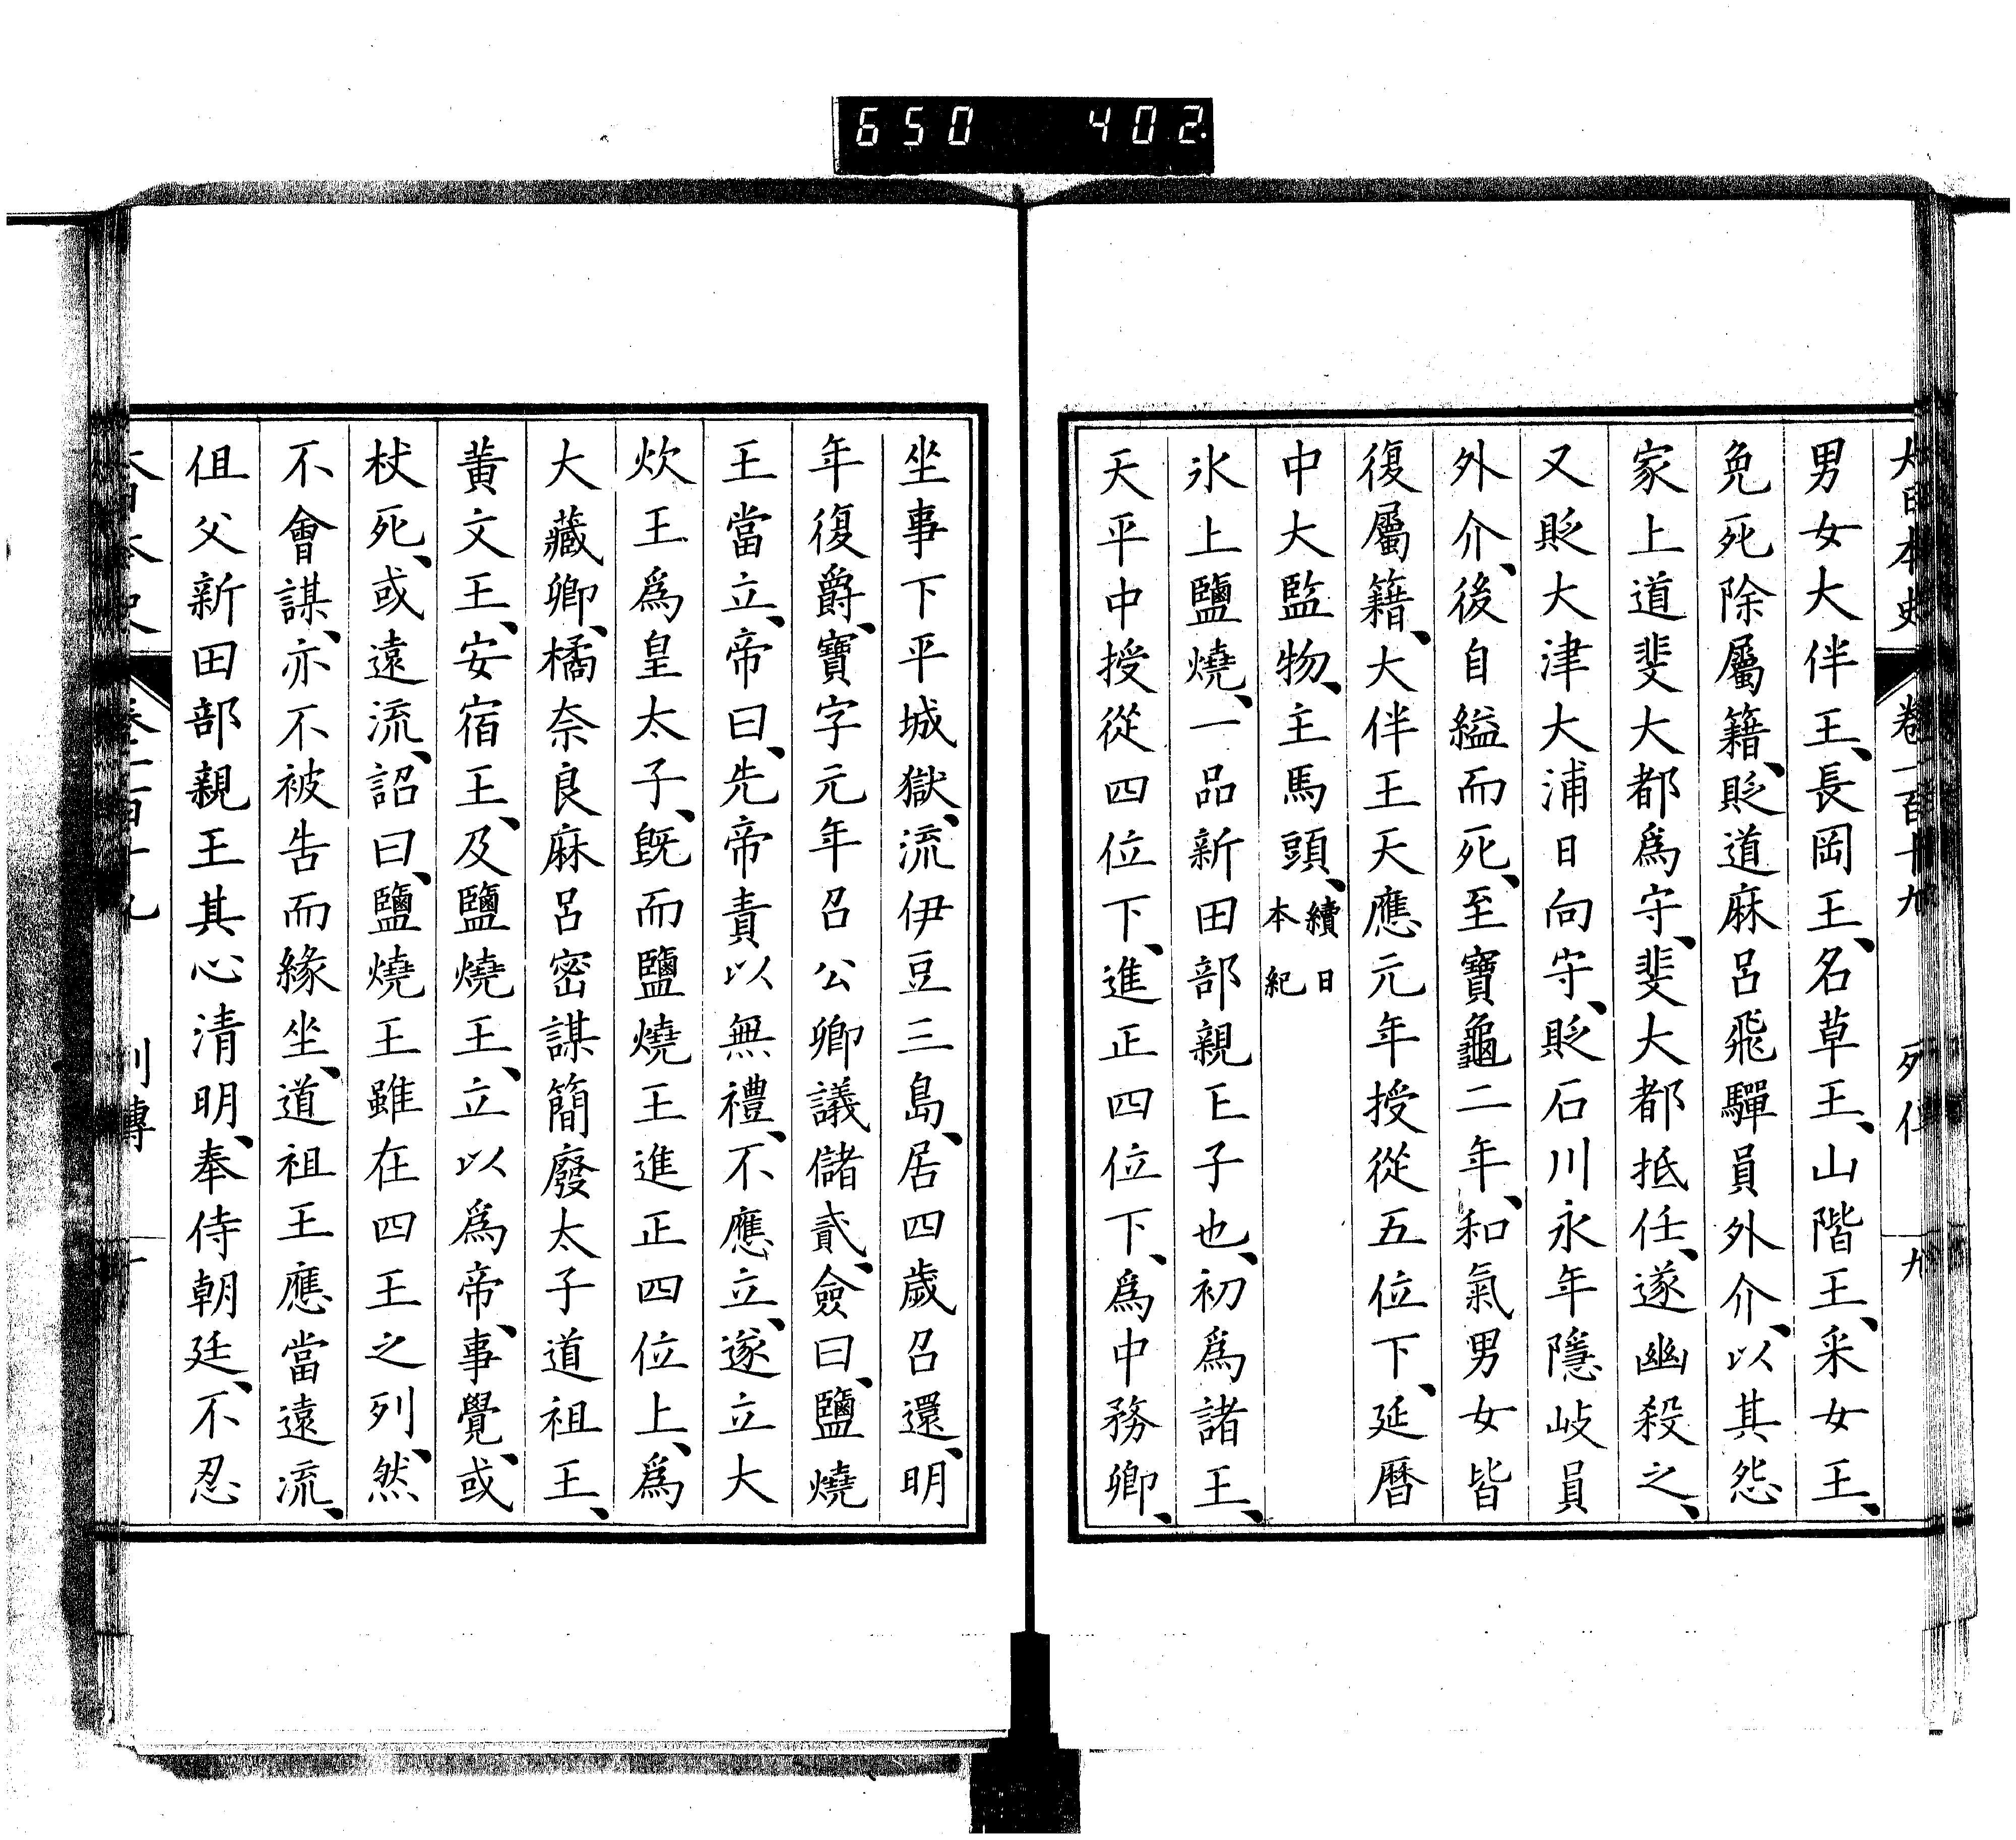 650 402
大日本史 卷一百十九 列傳 九
男女大伴王、長岡王、名草王、山階王、采女王、
免死除屬籍、貶道麻呂飛驒員外介、以其怨
家上道斐大都爲守、斐大都抵任、遂幽殺之、
又貶大津大浦日向守、貶石川永年隱岐員
外介、後自縊而死、至寶龜二年、和氣男女皆
復屬籍、大伴王天應元年授從五位下、延曆
中大監物、主馬頭、續日本紀
氷上鹽燒、一品新田部親王子也、初爲諸王、
天平中授從四位下、進正四位下、爲中務卿、
坐事下平城獄、流伊豆三島、居四歲召還、明
年復爵、寶字元年召公卿議儲貳、僉曰、鹽燒
王當立、帝曰、先帝責以無禮、不應立、遂立大
炊王爲皇太子、既而鹽燒王進正四位上、爲
大藏卿、橘奈良麻呂密謀簡廢太子道祖王、
黃文王、安宿王、及鹽燒王、立以爲帝、事覺、或
杖死、或遠流、詔曰、鹽燒王雖在四王之列、然
不會謀、亦不被告而緣坐、道祖王應當遠流、
伹父新田部親王其心清明、奉侍朝廷、不忍
大日本史 卷一百十九 列傳 十